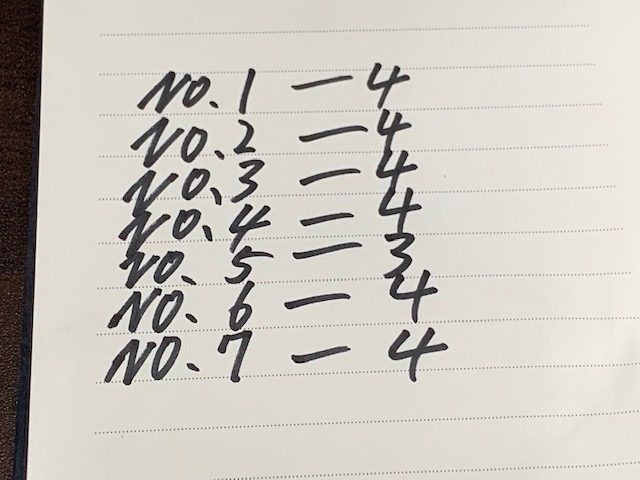 NO.1 — 4
NO.2 — 4
NO.3 — 4
NO.4 — 4
NO.5 — 3
NO.6 — 4
NO.7 — 4